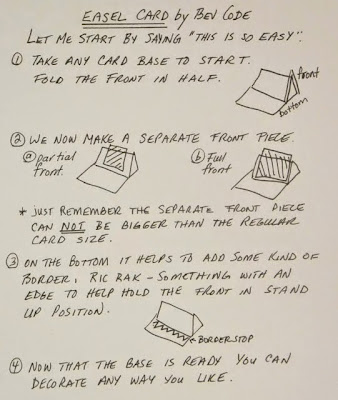 EASEL CARD by BEV CODE
LET ME START BY SAYING "THIS IS SO EASY".
① TAKE ANY CARD BASE TO START.
FOLD THE FRONT IN HALF.
front
bottom
② WE NOW MAKE A SEPARATE FRONT PIECE.
ⓐ partial
front.
ⓑ Full
front
* JUST REMEMBER THE SEPARATE FRONT PIECE
CAN NOT BE BIGGER THAN THE REGULAR
CARD SIZE.
③ ON THE BOTTOM IT HELPS TO ADD SOME KIND OF
BORDER, RIC RAK - SOMETHING WITH AN
EDGE TO HELP HOLD THE FRONT IN STAND
UP POSITION.
BORDER STOP
④ NOW THAT THE BASE IS READY YOU CAN
DECORATE ANY WAY YOU LIKE.